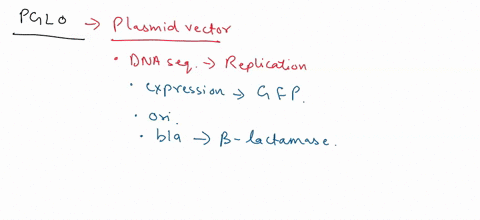 PGLO → Plasmid vector
• DNA seq. → Replication
• expression → GFP.
• ori.
• bla → β-lactamase.